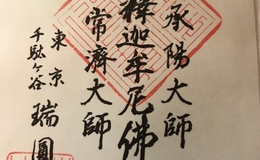 承陽大師
釋迦牟尼佛
常濟大師
東京
千駄ヶ谷
瑞圓